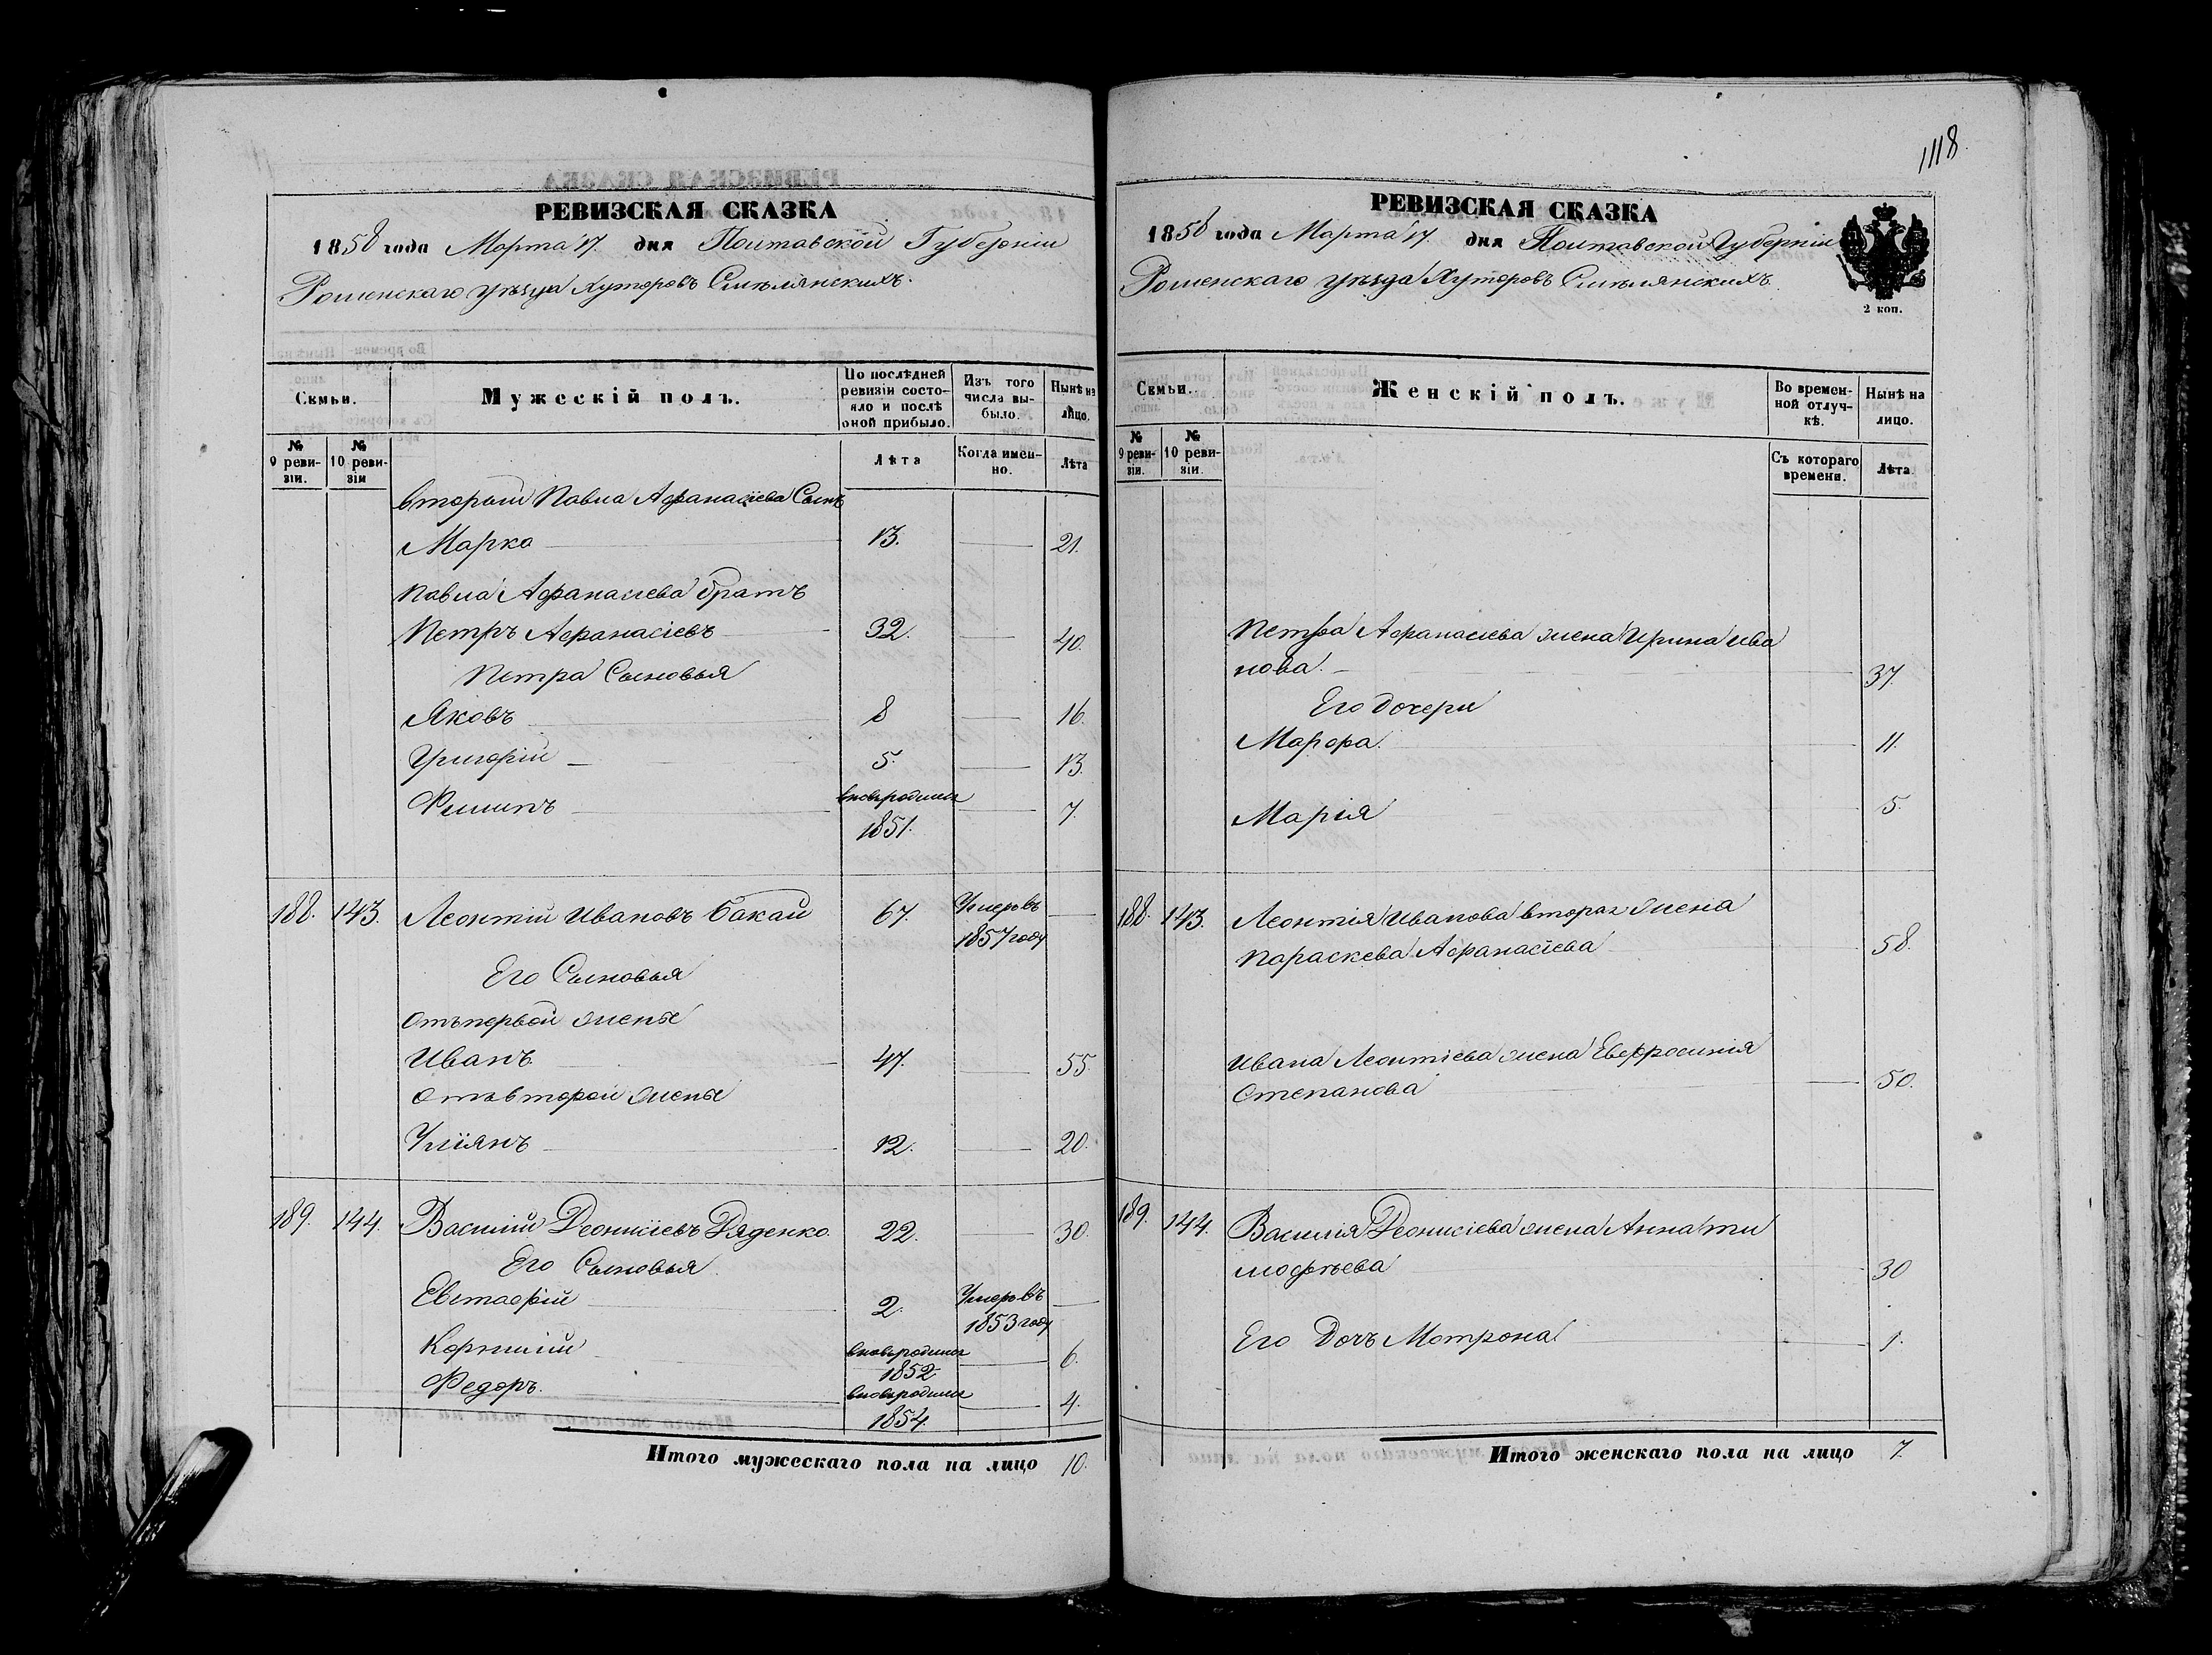 1118
РЕВИЗСКАЯ СКАЗКА
1858 года Марта 17. дня Полтавской Губерніи
Роменскаго уѣзда Хуторовъ Смѣлянскихъ.
Семьи.
Мужескій полъ.
По послѣдней ревизіи состояло и послѣ оной прибыло.
Изъ того числа выбыло.
Нынѣ на лицо.
№ 9 ревизіи.
№ 10 ревизіи
Лѣта
Когда именно.
Лѣта
вторый Павла Афанасіева Сынъ
Марко 13. 21.
Павла Афанасіева братъ
Петръ Афанасіевъ 32. 40.
Петра Сыновья
Яковъ 8 16.
Григорій 5. 13.
Филипъ вновьродился 7.
1851.
188. 143. Леонтій Ивановъ Бакай 67. Умеръ въ
1857 году
Его Сыновья
Отъ первой жены
Иванъ 47. 55.
Отъ второй жены
Уліянъ 12. 20.
189. 144. Василій Деонисіевъ Дяденко 22. 30.
Его Сыновья
Евстафій 2. Умеръ въ
1853 году
Корнилій вновьродился 6.
1852
Федоръ. вновьродился 4.
1854.
Итого мужескаго пола на лицо 10.
РЕВИЗСКАЯ СКАЗКА
1858 года Марта 17. дня Полтавской Губерніи
Роменскаго уѣзда Хуторовъ Смѣлянскихъ
2 коп.
Семьи.
Женскій полъ.
Во временной отлучкѣ.
Нынѣ на лицо.
№ 9 ревизіи.
№ 10 ревизіи.
Съ котораго времени.
Лѣта.
Петра Афанасіева жена Ирина Ива
нова. 37.
Его дочери
Марфа. 11.
Марія 5.
188. 143. Леонтія Иванова вторая жена
Параскева Афанасіева 58.
Ивана Леонтіева жена Евфросинія
Степанова 50.
189. 144. Василія Деонисіева жена Анна Ти
мофѣева 30
Его Дочь Мотрона 1.
Итого женскаго пола на лицо 7.